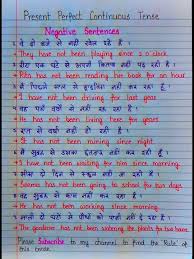 Present Perfect Continuous Tense
Negative Sentences
वे दो बजे से नहीं खेल रहे हैं।
They have not been playing since 2 o'clock.
रीटा एक घंटे से अपनी किताब नहीं पढ़ रही है।
Rita has not been reading her book for an hour
मैं पिछले साल से
I have not been living here for last year
वह पाँच वर्षों से यहाँ नहीं रह रहा है।
He has not been living for
रात से वर्षा नहीं हो रही है।
It has not been raining since night
मैं सुबह से उसका इंतजार नहीं कर रहा हूँ।
I have not been waiting for him since morning.
सीमा दो दिन से स्कूल नहीं जा रही है।
Seema has not been going to school for two days
वह सुबह से काम नहीं कर रहा है।
He has not been working since morning
माली दो घंटे से पौधों को पानी नहीं दे रहा है।
The gardener has not been watering the plants for two hours
Please Subscribe to my channel to find the Rule of
this tense.